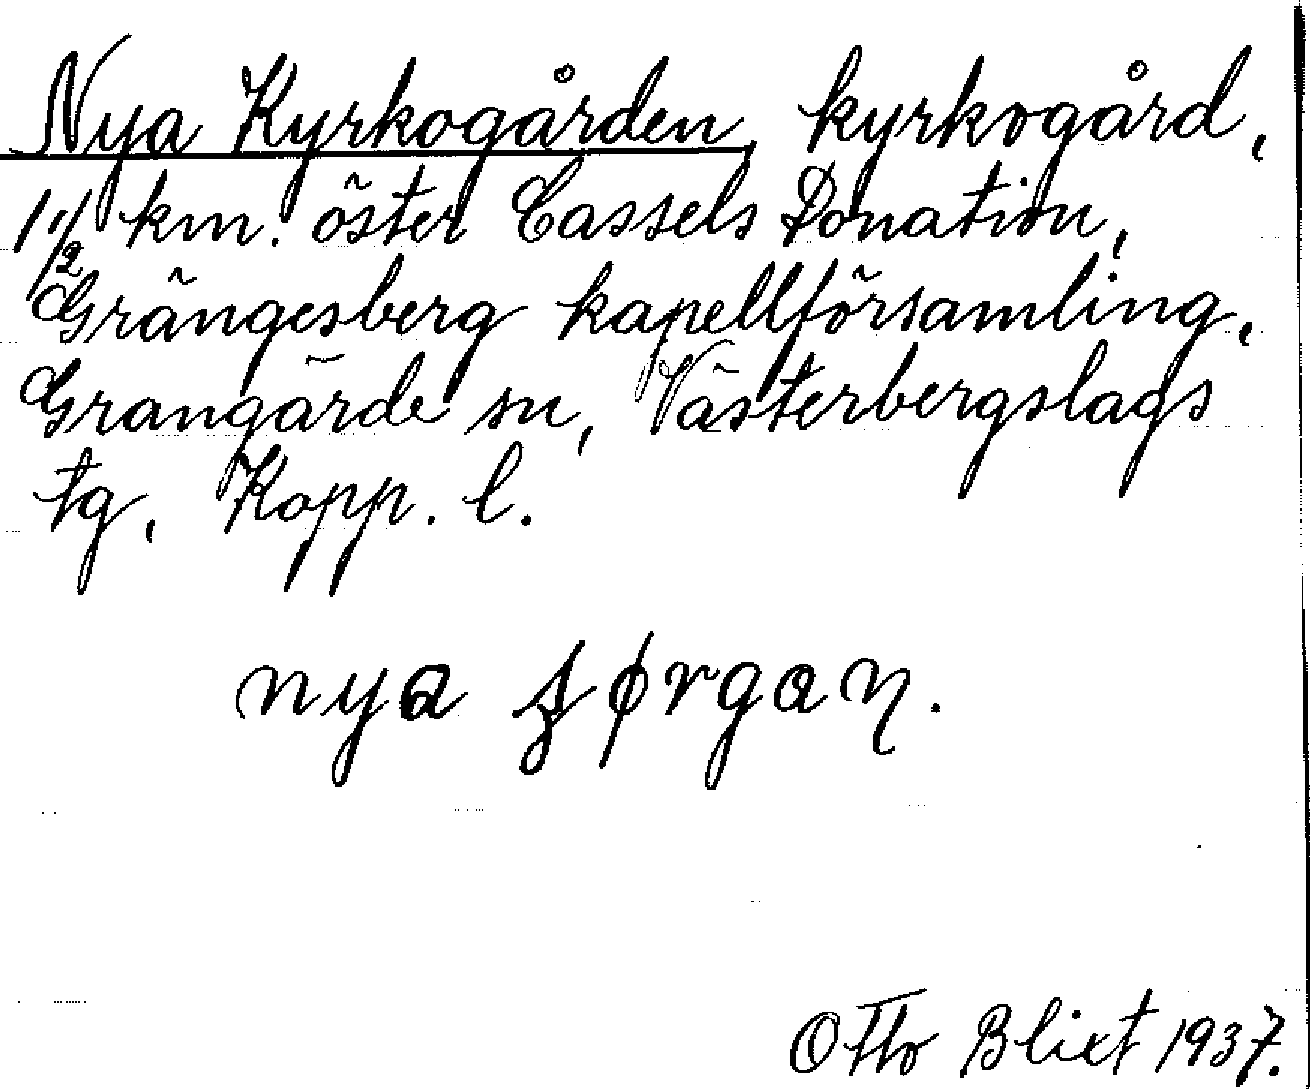 Nya Kyrkogården, kyrkogård,
1 1/2 km. öster Cassels Donation,
Grängesberg kapellförsamling,
Grangärde sn, Västerbergslags
tg, Kopp. l.
nya
Otto Blixt 1937.